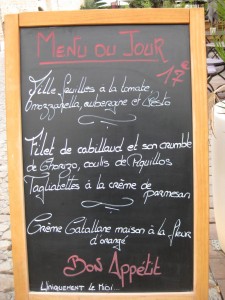 MENU DU JOUR
17€
Mille feuilles a la tomate,
mozzanella, aubergine et Pesto
Filet de cabillaud et son crumble
de Chorizo, coulis de Piquillos
Tagliatelles à la crème de
parmesan
Crème Catallane maison à la fleur
d'orange
BON APPÉTIT
UNIQUEMENT LE MIDI...